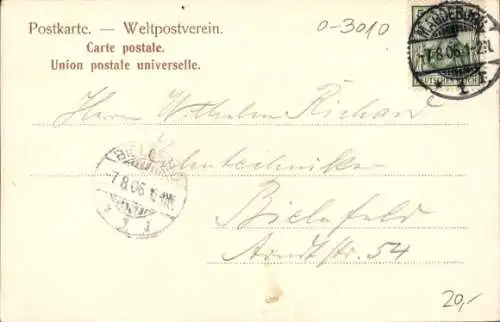 Postkarte. — Weltpostverein.
Carte postale.
Union postale universelle.
0-3010
MAGDEBURG
-7.8.06.1-2N.
* 1 r.
Herrn Wilhelm Richard
Zahntechniker
Bielefeld
Arndtstr. 54
BIELEFELD
-7.8.06.
1
20,-